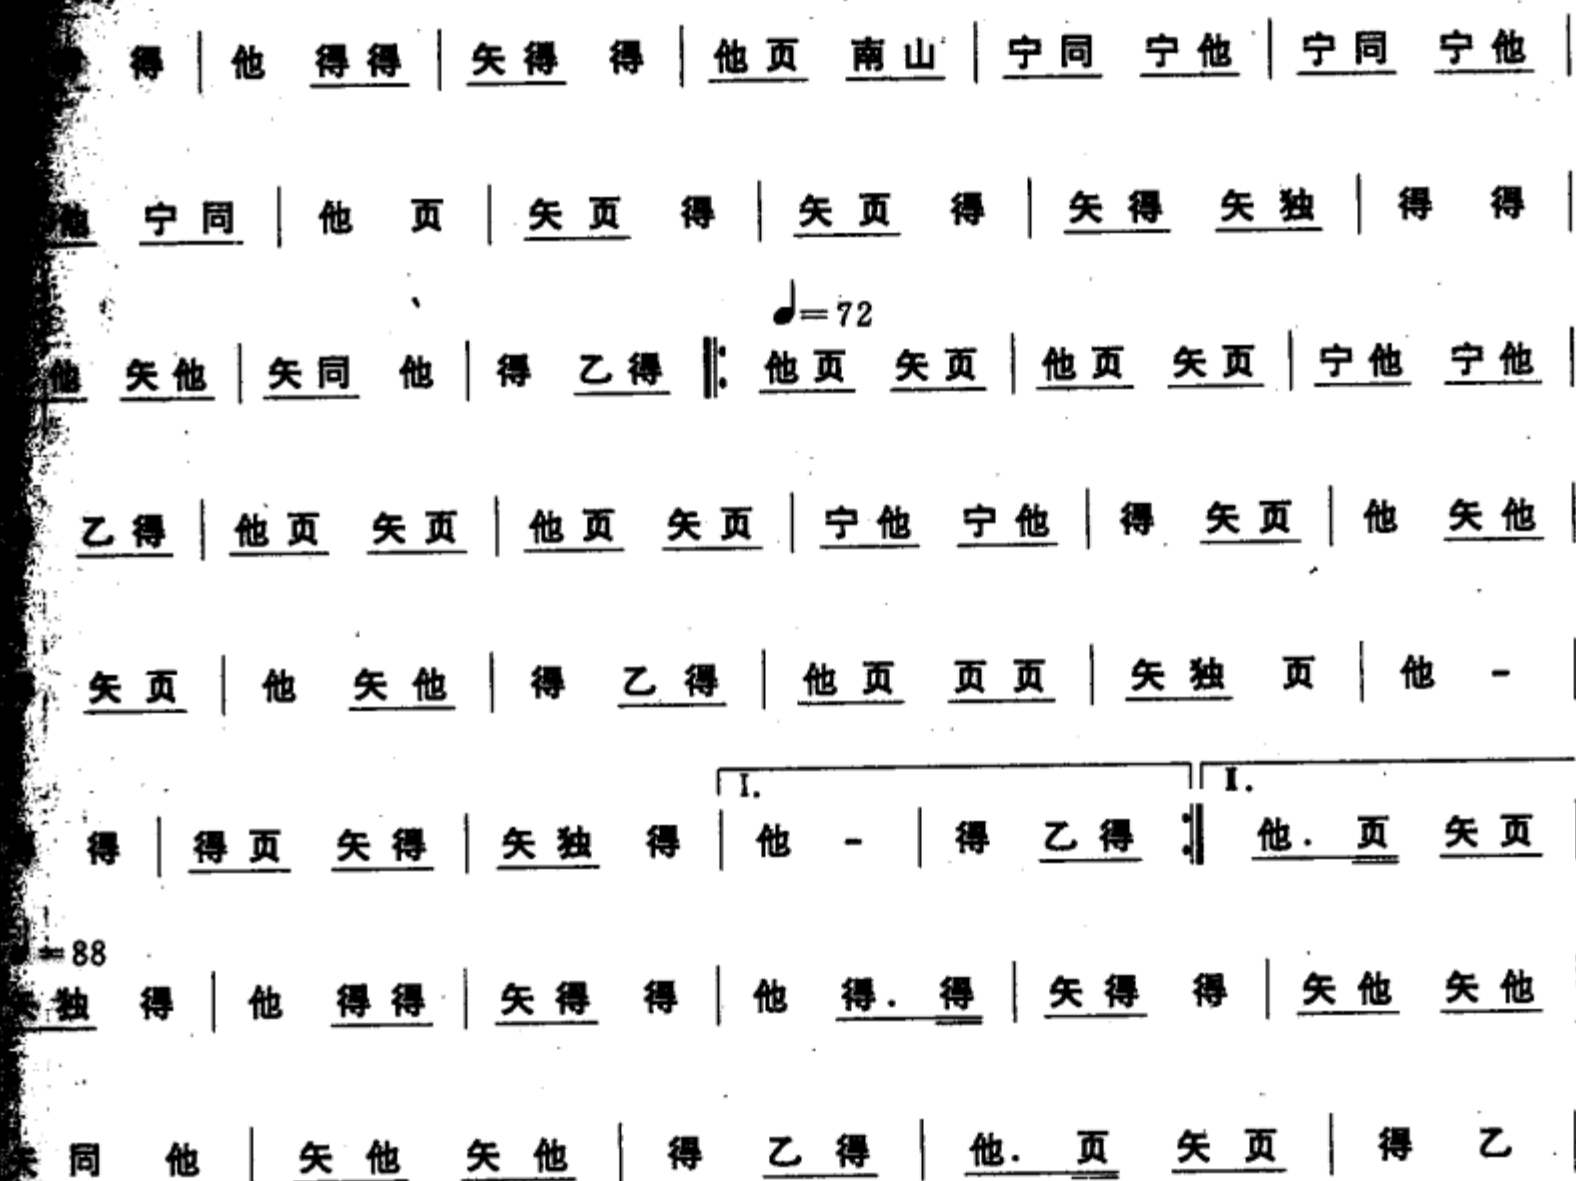 得 | 他 得得 | 矢得 得 | 他页 南山 | 宁同 宁他 | 宁同 宁他 |
他 宁同 | 他 页 | 矢页 得 | 矢页 得 | 矢得 矢独 | 得 得 |
♩=72
他 矢他 | 矢同 他 | 得 乙得 ‖: 他页 矢页 | 他页 矢页 | 宁他 宁他 |
乙得 | 他页 矢页 | 他页 矢页 | 宁他 宁他 | 得 矢页 | 他 矢他 |
矢页 | 他 矢他 | 得 乙得 | 他页 页页 | 矢独 页 | 他 - |
I. II.
得 | 得页 矢得 | 矢独 得 | 他 - | 得 乙得 :‖ 他. 页 矢页 |
=88
矢独 得 | 他 得得 | 矢得 得 | 他 得. 得 | 矢得 得 | 矢他 矢他
矢同 他 | 矢他 矢他 | 得 乙得 | 他. 页 矢页 | 得 乙 |